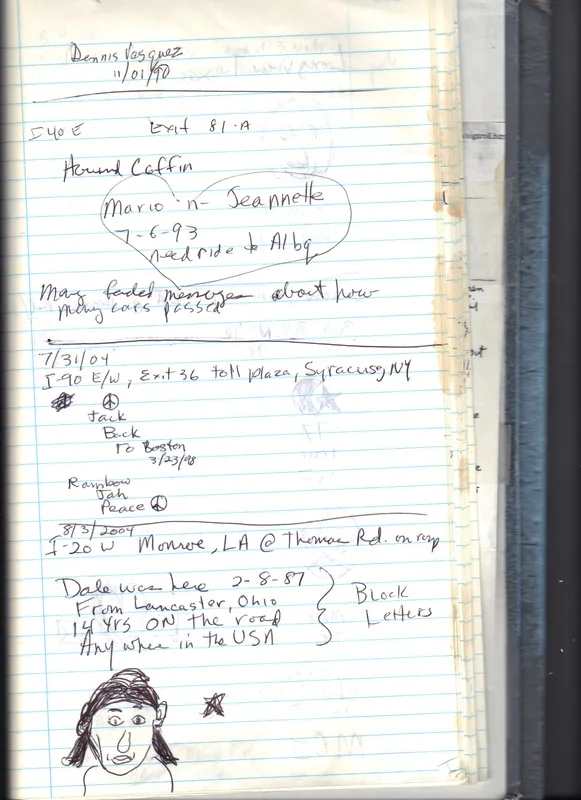 Dennis Vasquez
11/01/90
I 40 E Exit 81-A
Howard Coffin
Mario 'n- Jeannette
7-6-93
need ride to Albq
Many faded messages about how
many cars passed
7/31/04
I-90 E/W, Exit 36 toll plaza, Syracuse, NY
Jack
Back
to Boston
3/23/98
Rainbow
Jah
Peace
8/3/2004
I-20 W Monroe, LA @ Thomas Rd. on ramp
Dale was here 2-8-87
From Lancaster, Ohio
14 Yrs ON the road
Any where in the USA
Block
Letters